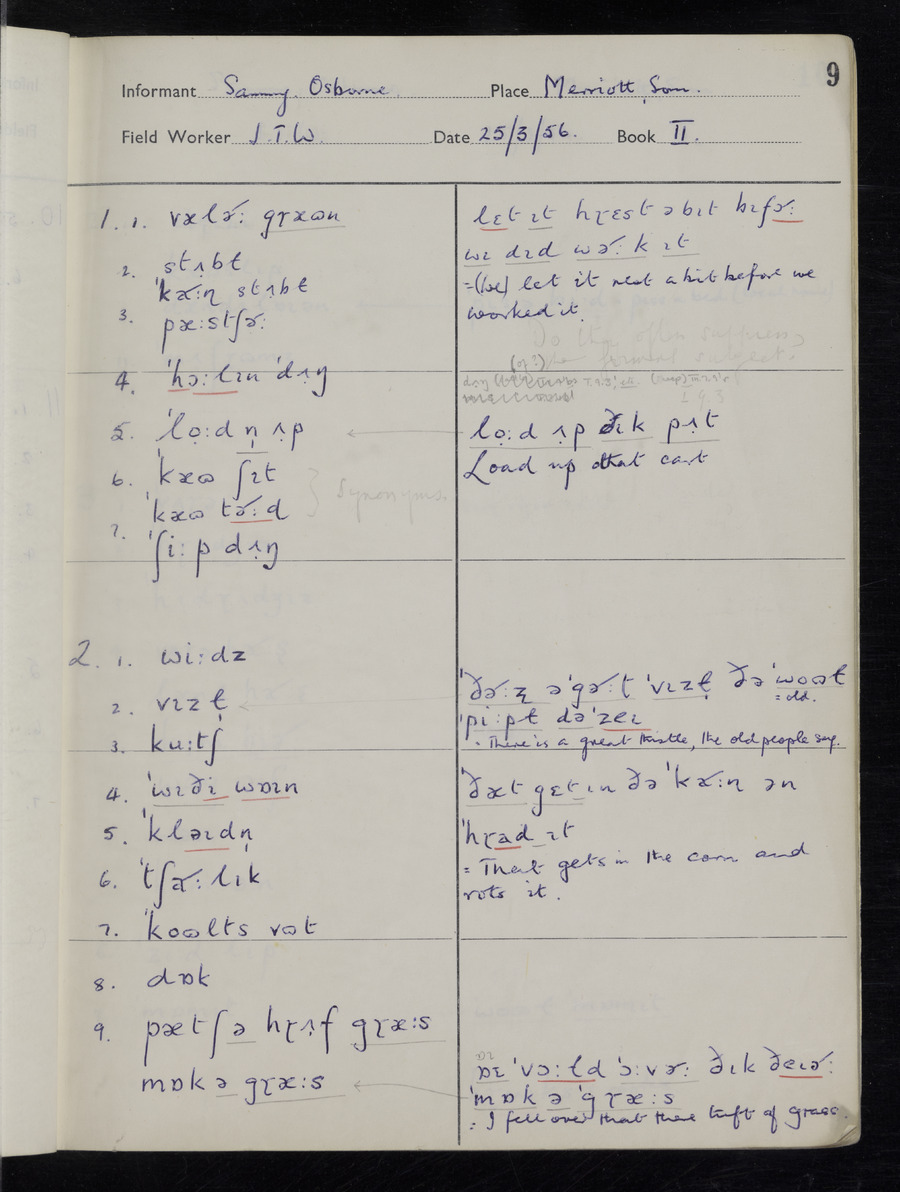 9
Informant Sammy Osborne Place Merriott, Som.
Field Worker J.T.W. Date 25/3/56. Book II.
1. 1. vælɚ: gɽæɷn
2. stʌbɫ
'kɚ:ɳ stʌbɫ
3. pæ:stʃɚ:
4. 'hɔ:lɪn 'dʌŋ
5. 'lo:d n̩ ʌp
6. 'kæɷ ʃɪt
'kæɷ tɚ:d
7. 'ʃi:p dʌŋ
synonyms.
lɛt ɪt hɽɛst ə bɪt bɪfɚ:
wɪ dɪd wɚ:k ɪt
=(we) let it rest a bit before we
worked it.
Do the often suppress
the formant subject.
(or?)
lo:d ʌp ðɪk pʌt
Load up that cart
2. 1. wi:dz
2. vɪzɫ
3. ku:tʃ
4. 'wɪðɪ wɒɪn
5. 'kləɪdn̩
6. 'tʃɚ:lɪk
7. 'koɷlts vɷt
8. dɒk
9. pætʃ ə hɽʌf gɽæ:s
mɒk ə gɽæ:s
'ðɚ:ʐ ə'gɚ:t 'vɪzɫ ðə 'woɷɫ
= old.
'pi:pɫ də'zeɪ
= There is a great thistle, the old people say.
'ðæt gɛt ɪn ðə 'kɚ:ɳ ən
'hɽad ɪt
= That gets in the corn and
rots it.
ɒɪ
ɒɪ 'vɔ:ɫd 'ɔ:vɚ: ðɪk ðeɪɚ:
'mɒk ə 'gɽæ:s
= I fell over that there tuft of grass.